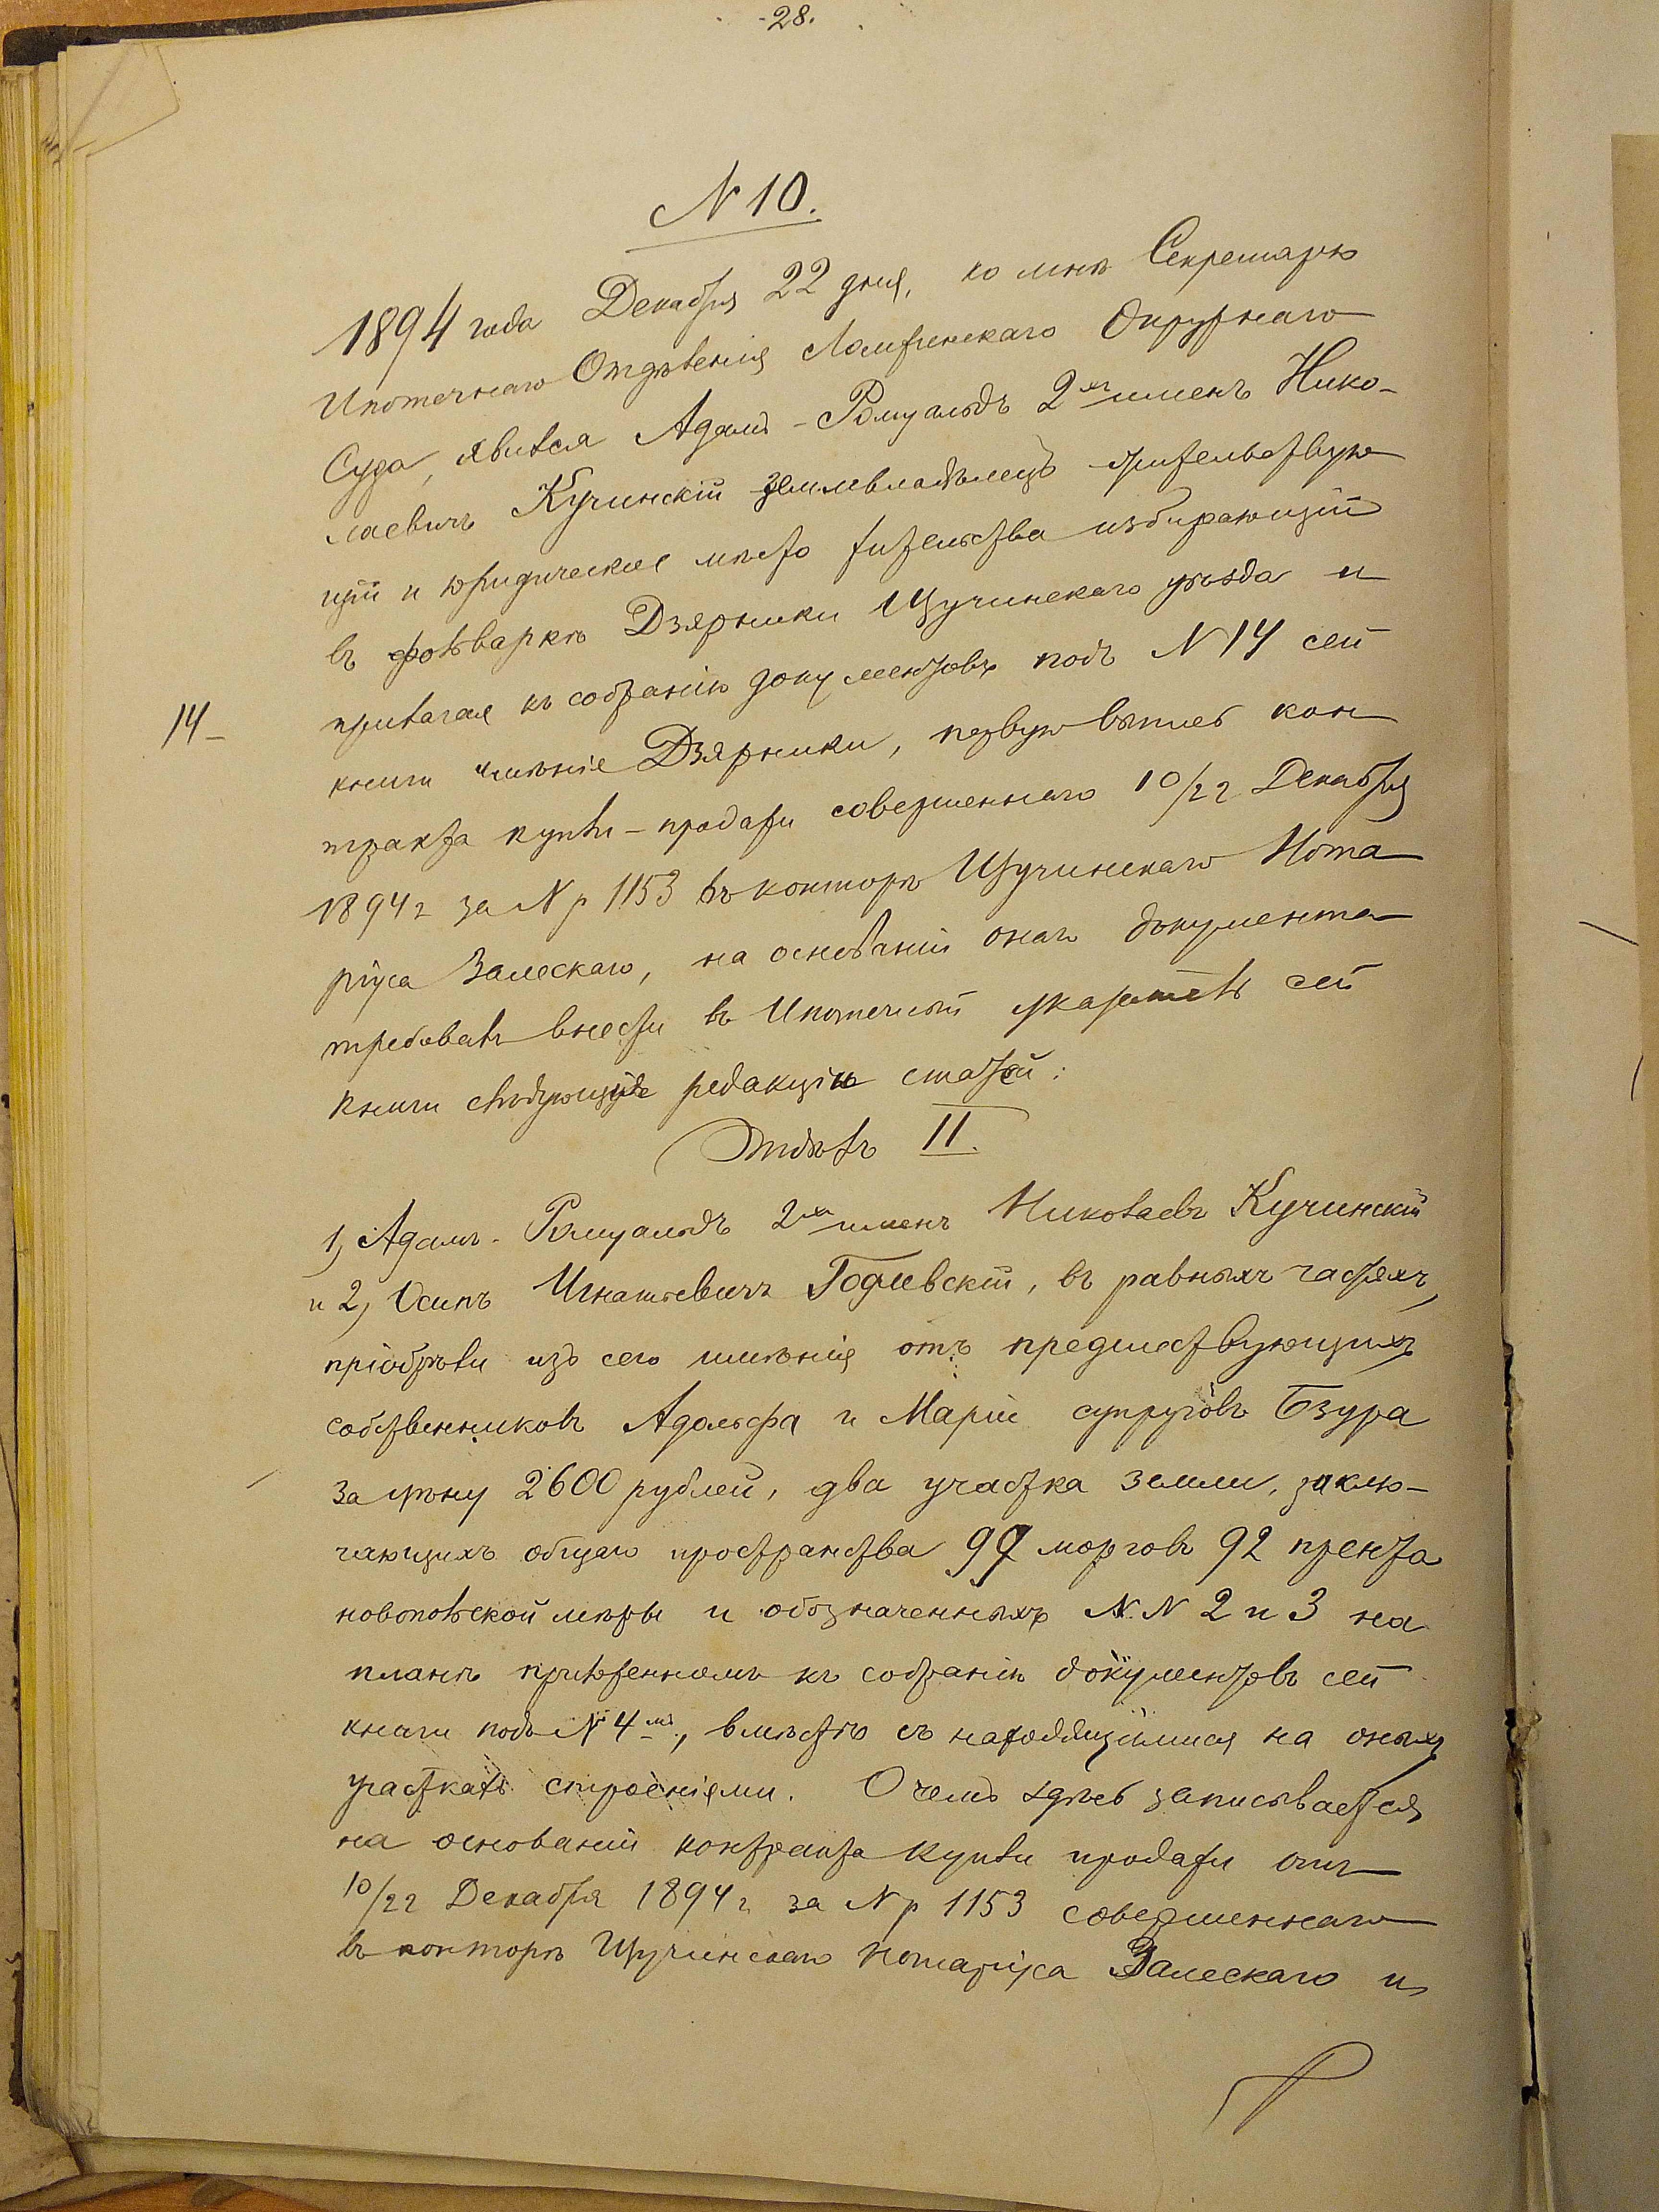 -28.
N 10.
1894 года Декабря 22 дня, ко мнѣ Секретарю
Ипотечнаго Отдѣленія Ломжинскаго Окружнаго
Суда, явился Адамъ-Ромуальдъ 2хъ именъ Нико-
лаевичъ Кучинскій землевладѣлецъ жительствую
щій и юридическое мѣсто жительства избирающій
въ фольваркѣ Дзярники Щучинскаго уѣзда и
14- прилагая къ собранію документовъ подъ N 14 сей
книги имѣніе Дзярники, первую выпись кон
тракта купли-продажи совершеннаго 10/22 Декабря
1894 г за N р 1153 въ конторѣ Щучинскаго Нота
ріуса Залескаго, на основаніи онаго документа
требовалъ внести въ Ипотечный указатель сей
книги слѣдующую редакцію статей:
Отдѣлъ II.
1, Адамъ-Ромуальдъ 2хъ именъ Николаевъ Кучинскій
и 2, Осипъ Игнатьевичъ Годлевскій, въ равныхъ частяхъ,
пріобрѣли изъ сего имѣнія отъ предшествующихъ
собственниковъ Адольфа и Маріи супруговъ Бзура
за цѣну 2600 рублей, два участка земли, заклю-
чающихъ общаго пространства моргов 92 прента
новопольской мѣры и обозначенныхъ N.N 2 и 3 на
планѣ приложенномъ къ собранію документовъ сей
книги подъ N 4мъ, вмѣстѣ съ находящимися на оныхъ
участкахъ строеніями. О чемъ здѣсь записывается
на основаніи контракта купли продажи отъ
10/22 Декабря 1894 г. за N р 1153 совершеннаго
въ конторѣ Щучинскаго Нотаріуса Залескаго и